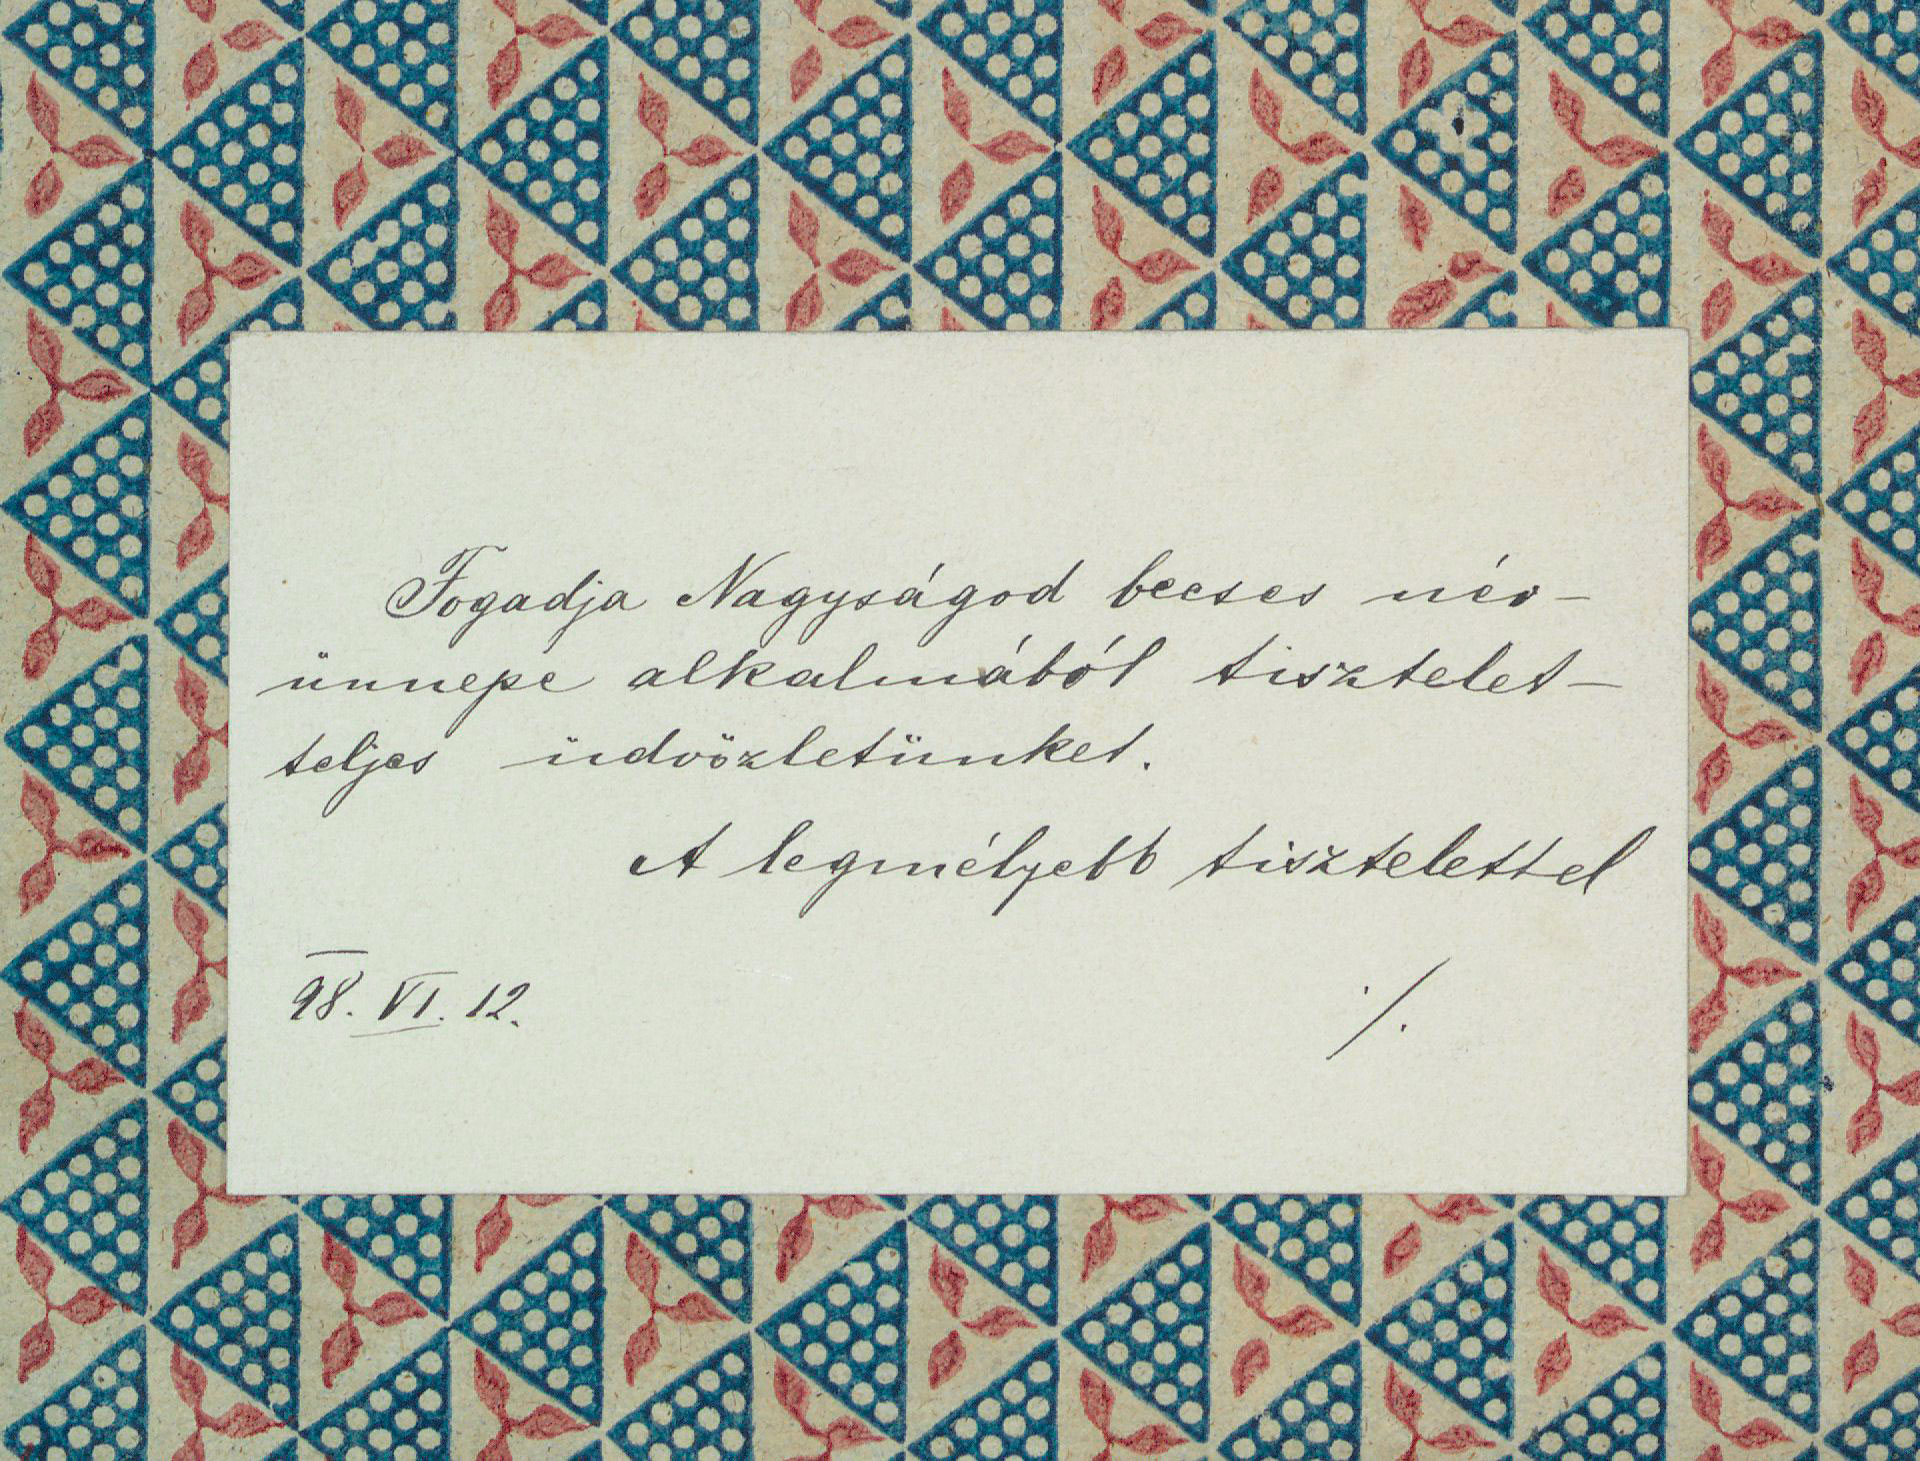 Fogadja Nagyságod becses név-
ünnepe alkalmából tisztelet-
teljes üdvözletünket.
A legmélyebb tisztelettel
98. VI. 12.
./.